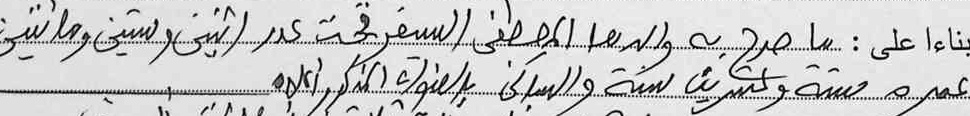 بناءا على : ما صرح به والدها المصطفى السفر تحت عدد اثنين وستين ومائتين
عمره ستة وعشرين سنة والساكن بالعنوان المذكور أعلاه